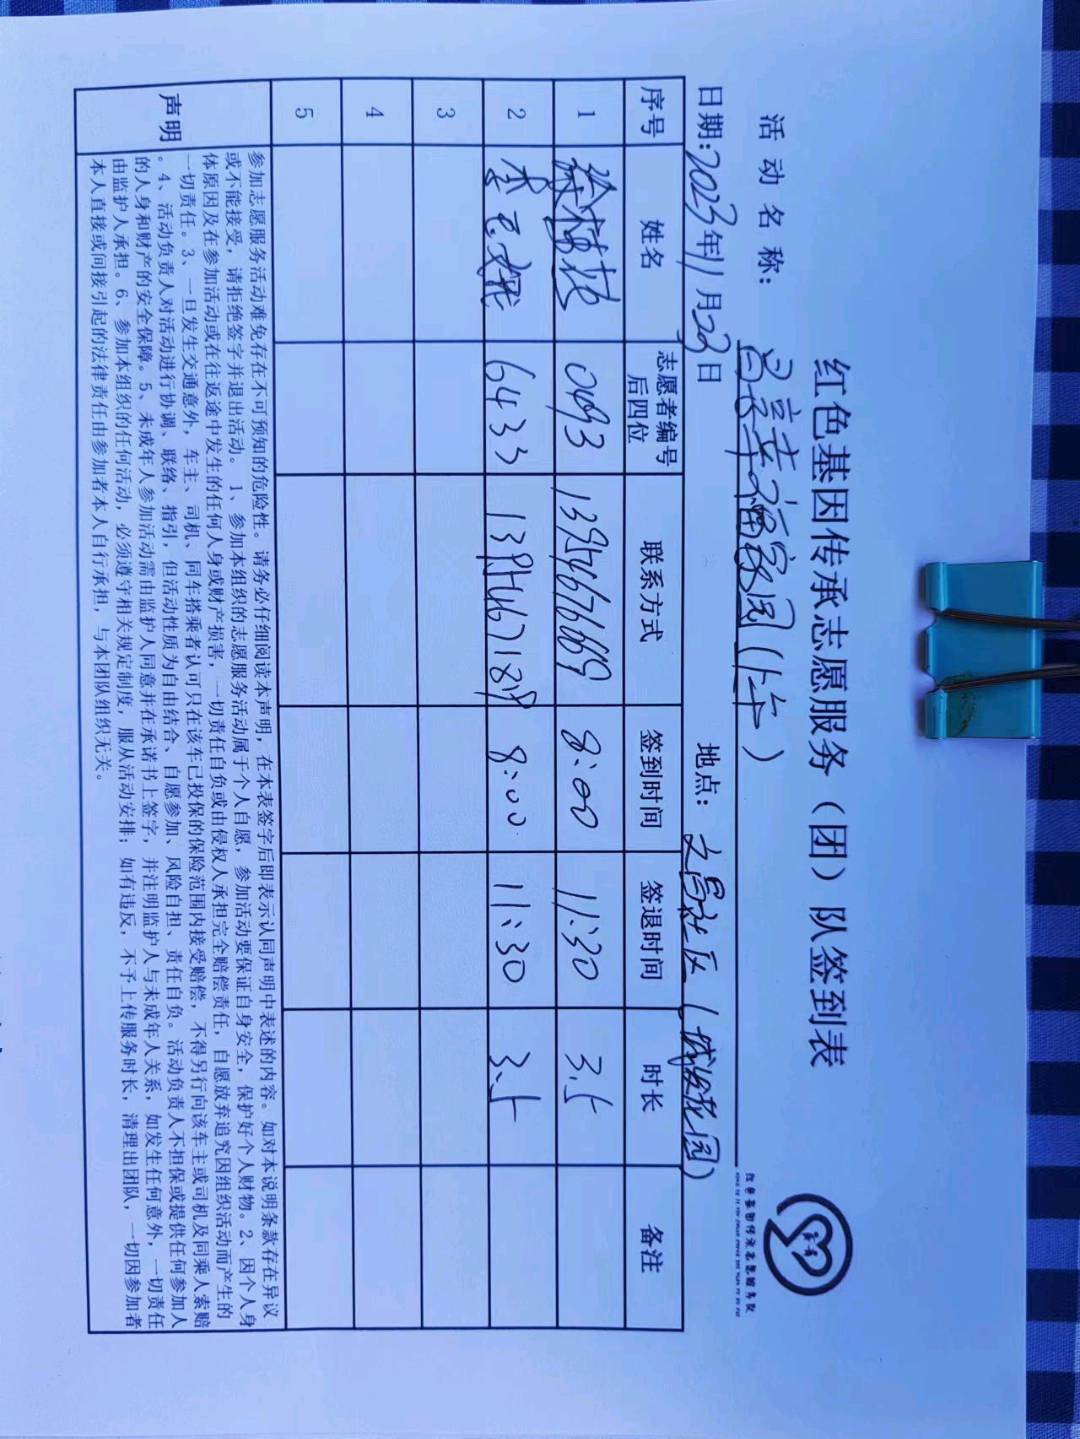 红色基因传承志愿服务（团）队签到表
红色基因传承志愿服务队
活动名称：幸福家园（上午）
日期：2023年11月23日 地点：文昌社区（城投花园）
序号 姓名 志愿者编号后四位 联系方式 签到时间 签退时间 时长 备注
1 0493 13954676669 8:00 11:30 3.5
2 李 6433 8:00 11:30 3.5
3
4
5
声明
参加志愿服务活动难免存在不可预知的危险性。请务必仔细阅读本声明，在本表签字后即表示认同声明中表述的内容。如对本说明条款存在异议
或不能接受，请拒绝签字并退出活动。1、参加本组织的志愿服务活动属于个人自愿，参加活动要保证自身安全，保护好个人财物。2、因个人身
体原因及在参加活动或在往返途中发生的任何人身或财产损害，一切责任自负或由侵权人承担完全赔偿责任，自愿放弃追究因组织活动而产生的
一切责任。3、一旦发生交通意外，车主、司机、同车搭乘者认可只在该车已投保的保险范围内接受赔偿，不得另行向该车主或司机及同乘人索赔
。4、活动负责人对活动进行协调、联络、指引，但活动性质为自由结合、自愿参加、风险自担、责任自负。活动负责人不担保或提供任何参加人
的人身和财产的安全保障。5、未成年人参加活动需由监护人同意并在承诺书上签字，并注明监护人与未成年人关系，如发生任何意外，一切责任
由监护人承担。6、参加本组织的任何活动，必须遵守相关规定制度，服从活动安排；如有违反，不予上传服务时长，清理出团队，一切因参加者
本人直接或间接引起的法律责任由参加者本人自行承担，与本团队组织无关。